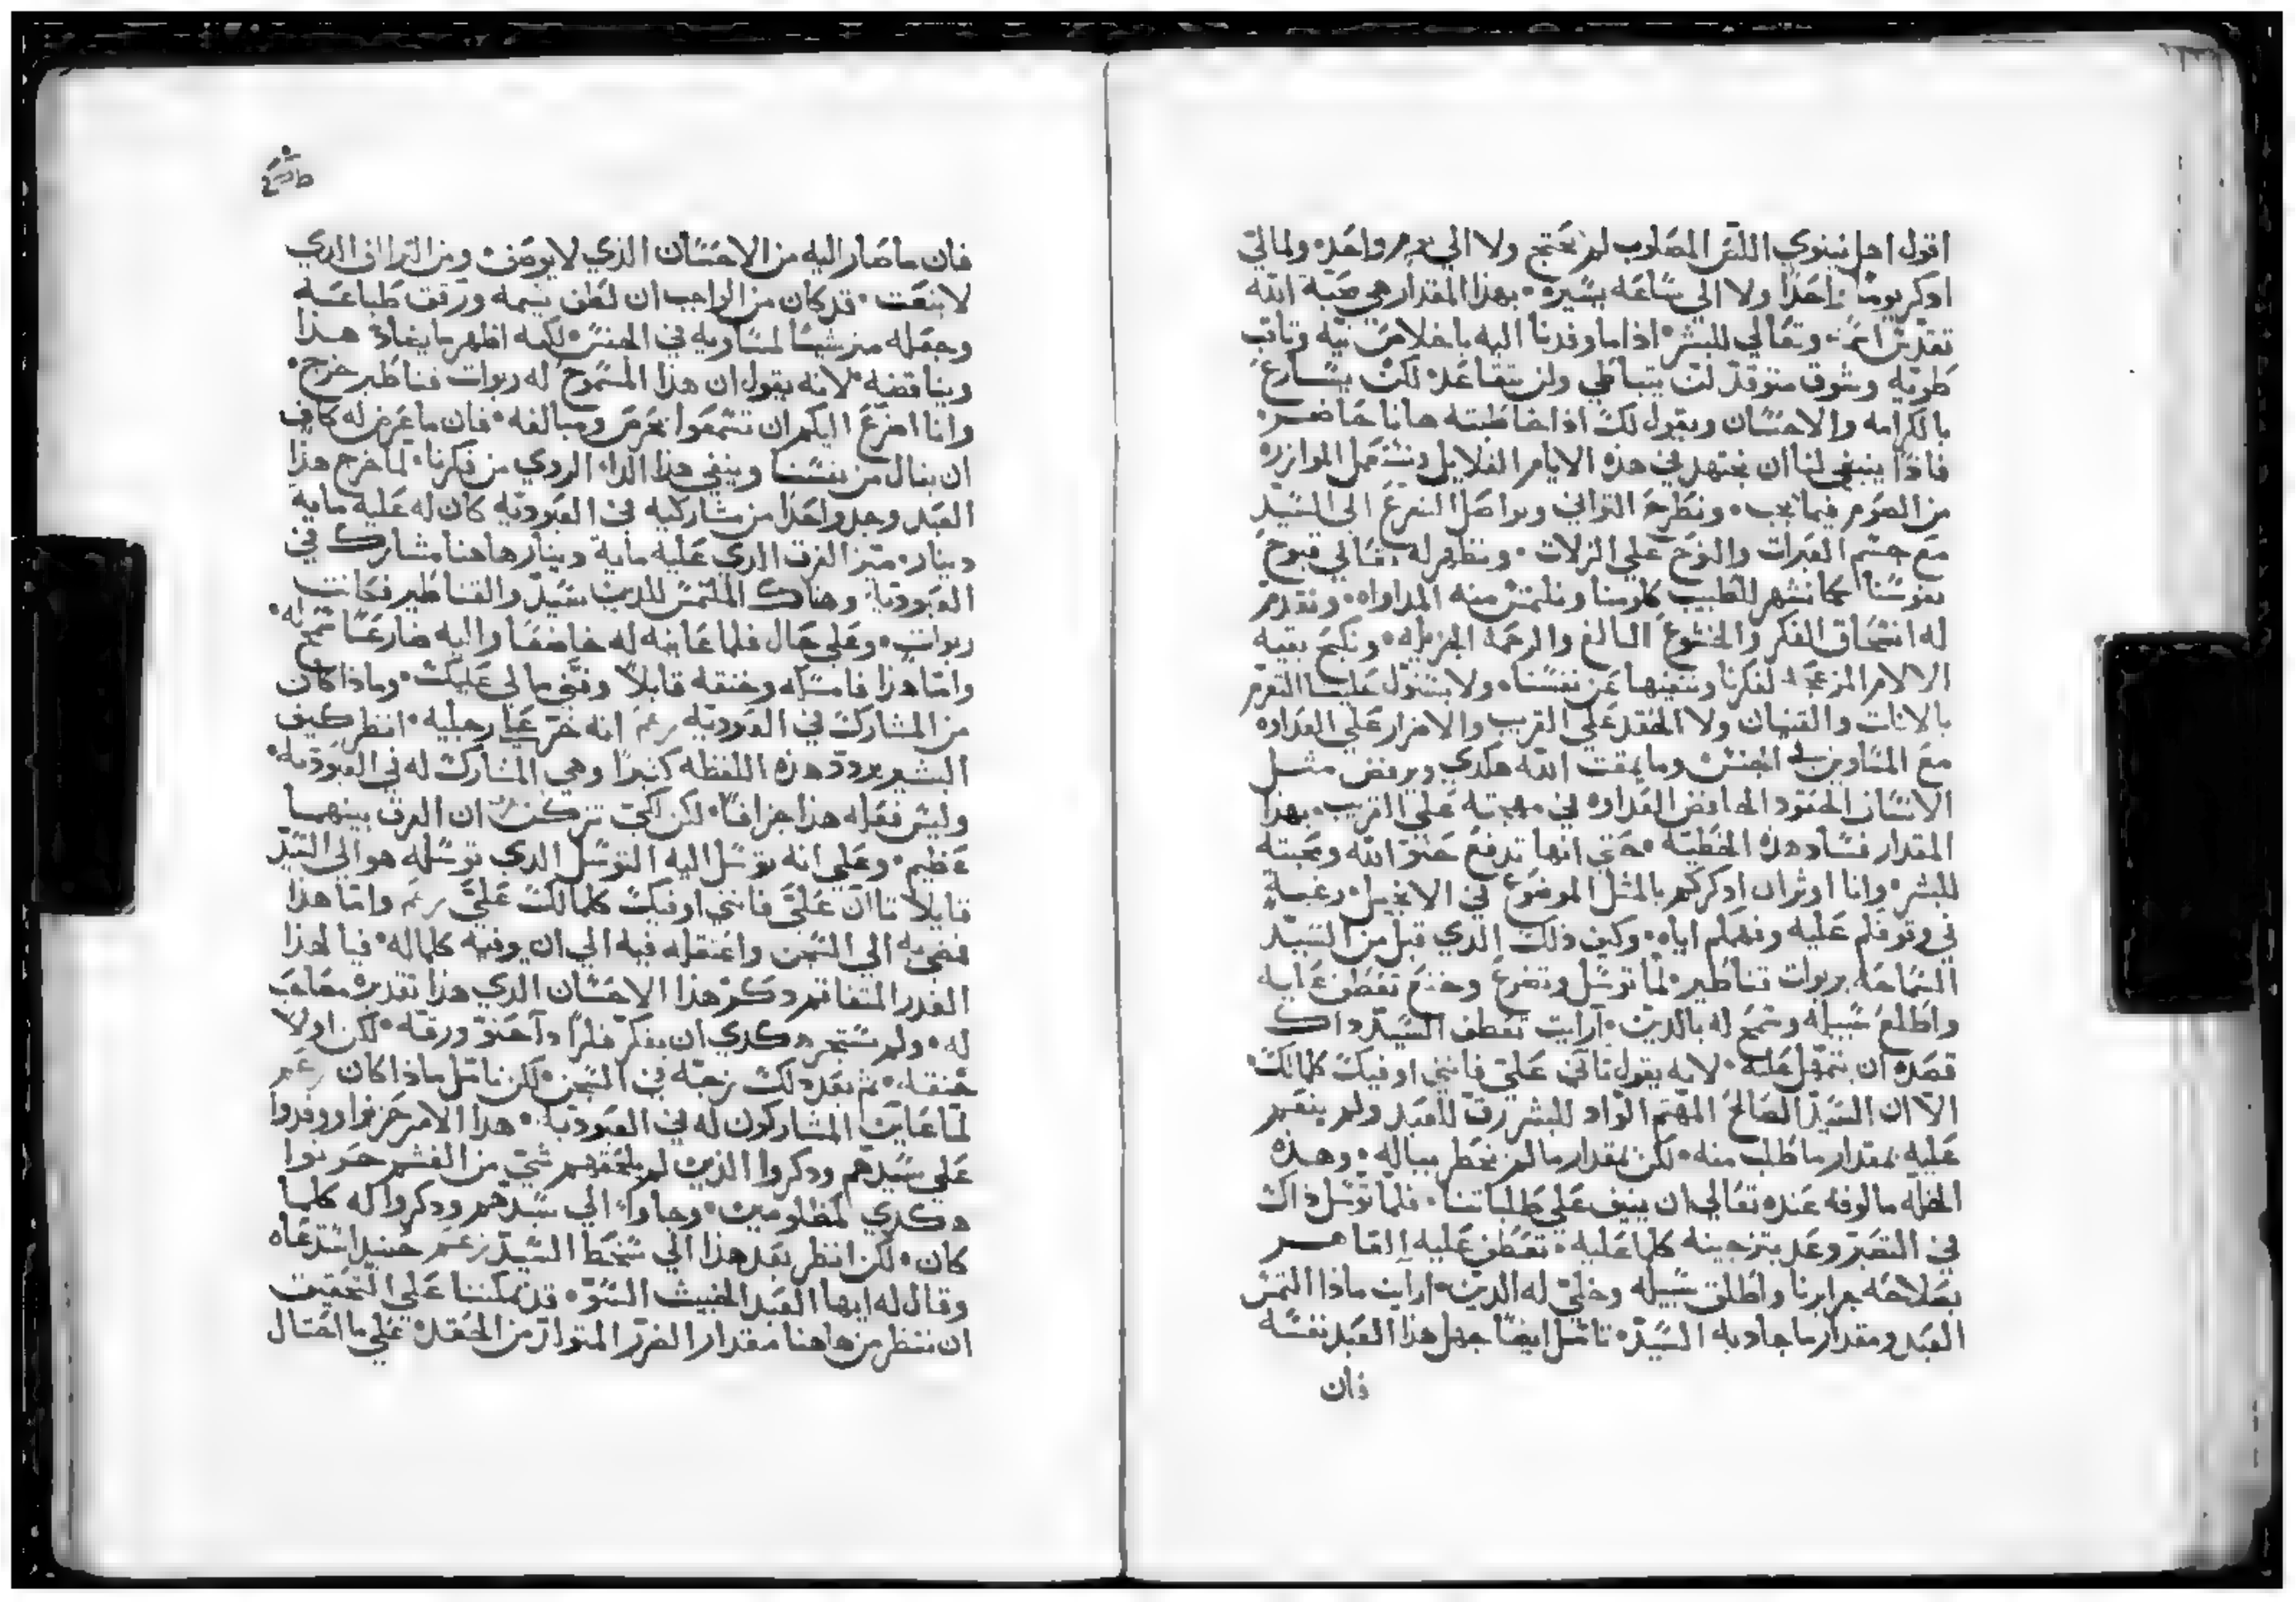 اقول اهل نينوي اللص المصلوب لم يحتج ولا الي يوم واحد ولمالي
اذكر يوما واحدا ولا الي ساعه يسيره بهذا المقدار هي محبة الله
تقدس اسمه وتعالي للبشر اذا ما وفدنا اليه باخلاص نيه وثاتب
طويه وشوق متوقد لن يتباطي ولن يتقاعد لكن يسارع
بالكرامه والاحسان ويقول لك اذا خاطبته هانا حاضر
فاذا ينبغي لنا ان نجتهد في هذه الايام القلايل ونستعمل الموازره
من الصوم فيما يجب ونطرح التواني ونواصل التضرع الي السيد
مع جسم العبرات والنوح علي الزلات ونظهر له تعالي قروح
نفوسنا كما نشهر للطبيب كلومنا ونلتمس منه المداواه ونقدم
له انسحاق الفكر والخشوع البالغ والرحمة الجزيله ونكبح بقية
الالام المزعجه لفكرنا وننفيها عن نفسنا ولا يستول علينا التغرم
بالاثات والقنيان ولا الحقد علي القريب والاصرار علي العداوه
مع المساوين في الجنس وما يمقت الله هكدي ويرفض مثل
الانسان الحقود الحافض العداوه في مهجته علي القريب بهذا
المقدار فساد هذه الخطيه حتي انها تدفع حنو الله ومحبته
للبشر وانا اوثر ان ادكركم بالمثل الموضوع في الانجيل رغبة
في وقوفكم عليه وفهمكم اياه وكيف ذلك الدي قبل من السيد
السماحه بربوات قناطير لما توسل وتضرع وخشع تعطف عليه
واطلع سبيله وسمح له بالدين ارايت تعطف السيد داك
قصده ان يتمهل عليه لانه يقول تاني علي فانني اوفيك كلما لك
الا ان السيد الصالح المهتم الواد للبشر رق للعبد ولم ينعم
عليه بمقدار ما طلب منه لكن بمقدار ما لم يخطر بباله وهذه
الخله مالوفه عنده تعالي ان ينيف علي طلباتنا فلما توسل ذاك
في التصبر وعد بتزجينه كلما عليه تعطف عليه القاهر
بصلاحه جرايرنا واطلق سبيله وخلي له الدين ارايت ماذا التمس
العبد ومقدار ما جاد به السيد تامل ايضا جهل هذا العبد نفسه
فان
فان ما صار اليه من الاحسان الذي لا يوصف ومن التراف الدي
لا ينعت قد كان من الواجب ان لطف شيمه ورقت طباعه
وجعله مترشيا لمساويه في الجنس لكنه اظهر ما يضاد هذا
ويناقضه لانه يقول ان هذا المسموح له ربوات قناطير خرج
وانا اضرع اليكم ان تسمعوا بحرص ومبالغه فان ما عرض له كاف
ان ينال من نفسنا وينفي هذا الدا الردي من فكرنا لما خرج هذا
العبد وجد واحدا من مشاركيه في العبوديه كان له عليه مايه
دينار ميز الفرق الدي عليه ماية دينار هاهنا مشارك في
العبوديه وهناك الملتمس للدين سيد والقناطير فكانت
ربوات وعلي حال فلما عاينه له خاضعا واليه ضارعا سمح له
واما هذا فامسكه وخنقه قايلا وفني ما لي عليك وماذا كان
من المشارك في العبوديه زعم انه خر علي رجليه انظر كيف
البشير يردد هذه اللفظه كثيرا وهي المشارك له في العبوديه
وليس فعله هذا جزافا لكن لكي ان الفرق بينهما
عظيم وعلي انه توسل اليه التوسل الدي توسله هو الي السيد
قايلا تاان علي فانني اوفيك كلما لك علي زعم واما هذا
فمضي به الي السجن واعتقله فيه الي ان يوفيه كلما له فيا لهذا
الغدر المتفاقم دكر هذا الاحسان الدي هذا تقديره مصاحب
له ولم يستجر هكدي ان يفكر فكرا دا حنو ورقه لكن اولا
خنقه ثم بعد دلك زجه في السجن لكن تامل ماذا كان زعم
لما عاين المشاركون له في العبوديه هذا الامر حزنوا ووفدوا
علي سيدهم ودكروا الذين لم يلحقهم شي من الغشم حزنوا
هكدي لمظلومين وجاوا الي سيدهم ودكروا له كلما
كان لكن انظر بعد هذا الي سخط السيد زعم حينيد استدعاه
وقال له ايها العبد الخبيث السو قد يمكننا علي التحقيق
ان ننظر من هاهنا مقدار الضرر المتواتر من الحقد علي ما احتال